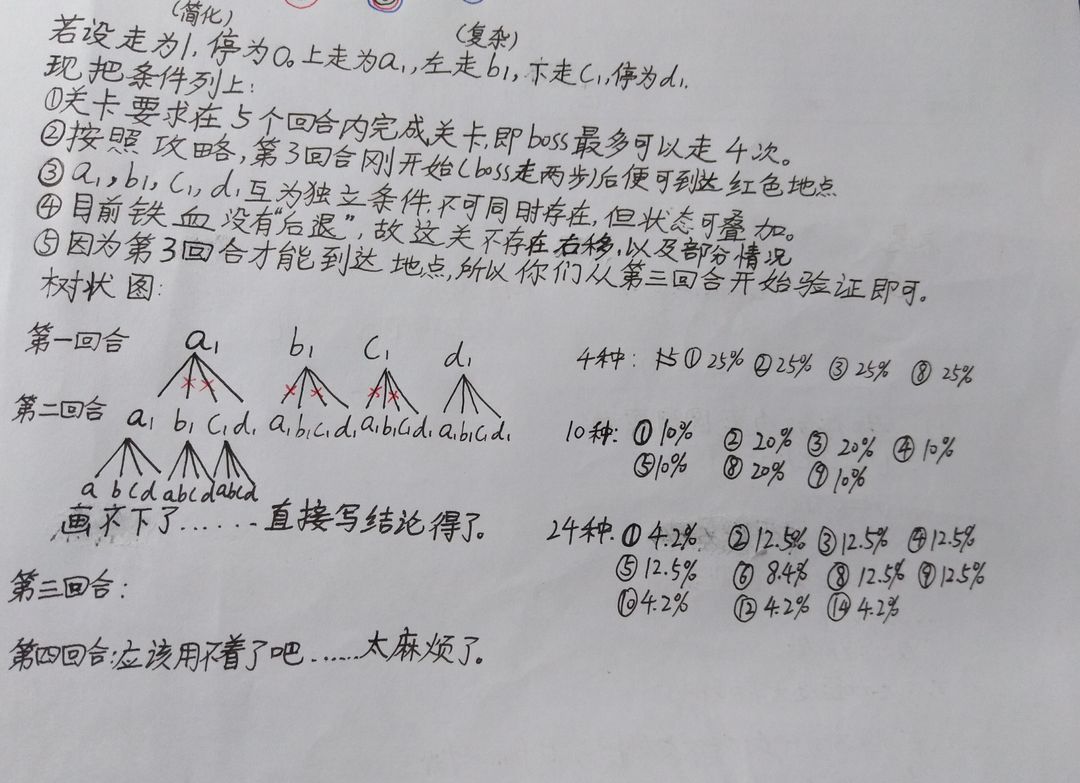 (简化)
(复杂)
若设走为1,停为0。上走为a₁,左走b₁,下走c₁,停为d₁.
现把条件列上:
①关卡要求在5个回合内完成关卡,即boss最多可以走4次。
②按照攻略,第3回合刚开始(boss走两步)后便可到达红色地点
③a₁,b₁,c₁,d₁互为独立条件,不可同时存在,但状态可叠加。
④目前铁血没有“后退”,故这关不存在右移,以及部分情况
⑤因为第3回合才能到达地点,所以你们从第三回合开始验证即可。
树状图:
第一回合 a₁ b₁ c₁ d₁
第二回合 a₁ b₁ c₁ d₁ a₁b₁c₁d₁ a₁b₁c₁d₁ a₁b₁c₁d₁
a b c d abcd abcd
画不下了......直接写结论得了。
第三回合:
第四回合:应该用不着了吧......太麻烦了。
4种: ①25% ②25% ③25% ⑧25%
10种: ①10% ②20% ③20% ④10%
⑤10% ⑧20% ⑨10%
24种. ①4.2% ②12.5% ③12.5% ④12.5%
⑤12.5% ⑥8.4% ⑧12.5% ⑨12.5%
⑩4.2% ⑫4.2% ⑭4.2%